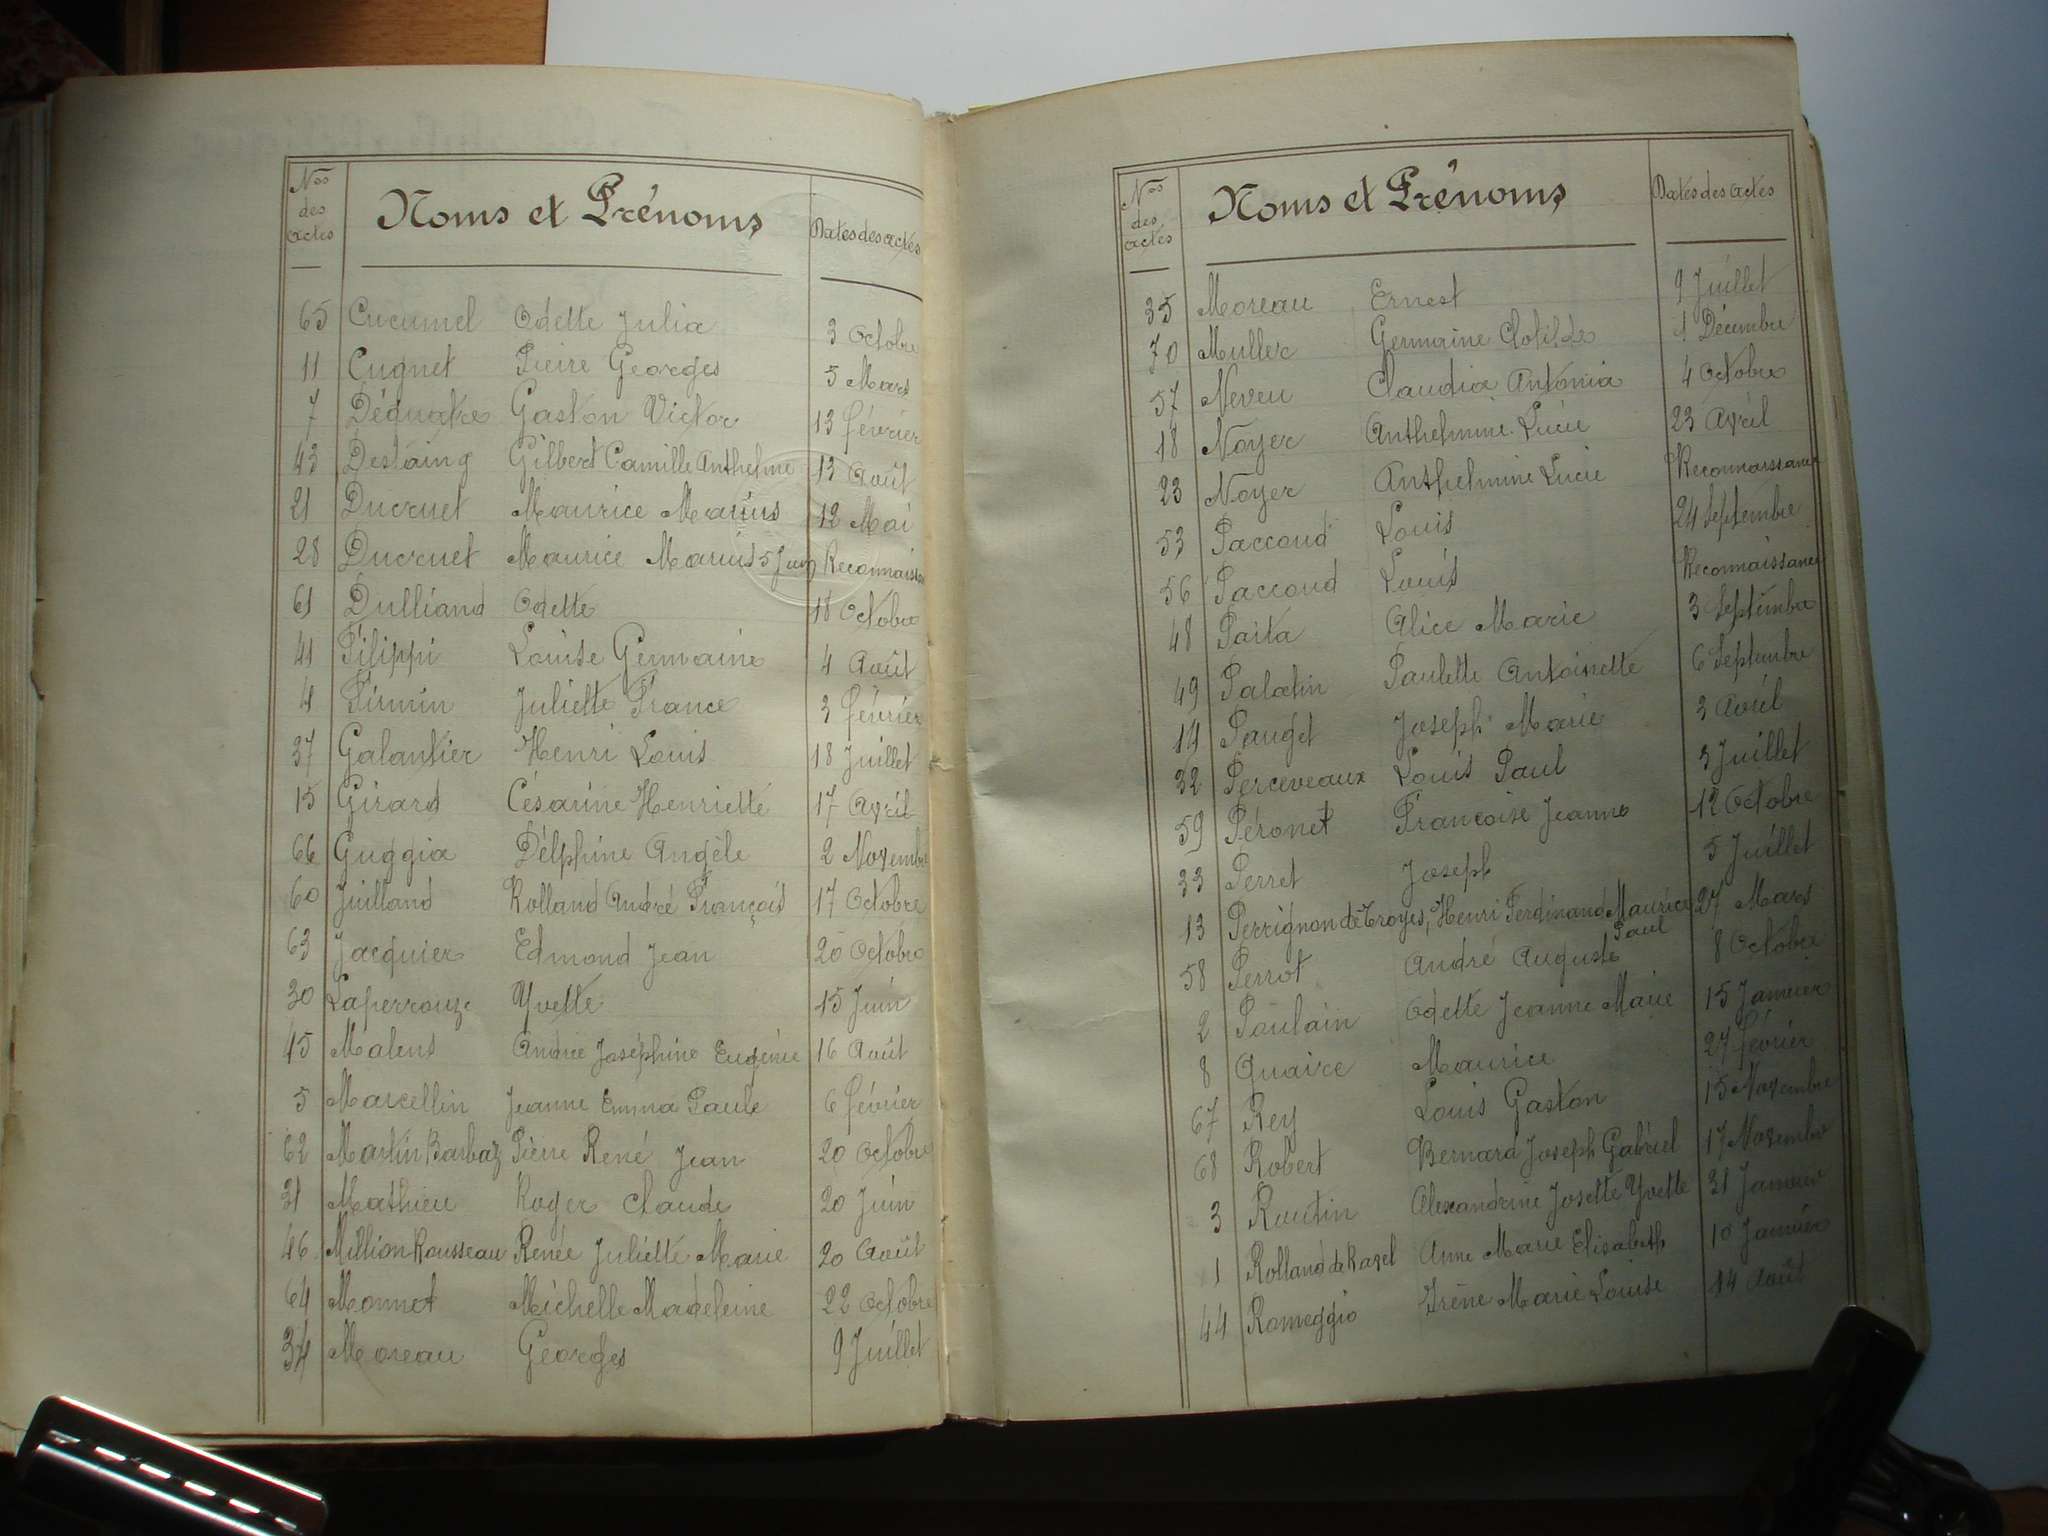 Nos des actes Noms et Prénoms Dates des actes
65 Cucumel Odette Julia 3 Octobre
11 Cugnet Pierre Georges 5 Mars
7 Déquatre Gaston Victor 13 février
43 Destaing Gilbert Camille Anthelme 13 Août
21 Ducruet Maurice Marius 12 Mai
28 Ducruet Maurice Marius 5 Juin Reconnaissance
61 Dulliand Odette 18 Octobre
41 Filippi Louise Germaine 4 Août
4 Firmin Juliette France 3 février
37 Galantier Henri Louis 18 Juillet
15 Girard Césarine Henriette 17 Avril
66 Guggia Délphine Angèle 2 Novembre
60 Juilland Rolland André François 17 Octobre
63 Jacquier Edmond Jean 20 Octobre
30 Laperrouze Yvette 15 Juin
45 Malens Andrée Joséphine Eugénie 16 Août
5 Marcellin Jeanne Emma Paule 6 février
62 Martin Barbaz Pierre René Jean 20 Octobre
31 Mathieu Roger Claude 20 Juin
46 Million Rousseau Renée Juliette Marie 20 Août
64 Monnet Michelle Madeleine 22 Octobre
34 Moreau Georges 9 Juillet
Nos des actes Noms et Prénoms Dates des actes
35 Moreau Ernest 9 Juillet
70 Muller Germaine Clotilde 1 Décembre
57 Neveu Claudia Antonia 4 Octobre
18 Noyer Anthelmine Lucie 23 Avril
23 Noyer Anthelmine Lucie Reconnaissance
53 Paccoud Louis 24 Septembre
56 Paccoud Louis Reconnaissance
48 Paita Alice Marie 3 Septembre
49 Palatin Paulette Antoinette 6 Septembre
14 Pauget Joseph Marie 3 Avril
32 Perceveaux Louis Paul 3 Juillet
59 Péronet Françoise Jeanne 12 Octobre
33 Perret Joseph 5 Juillet
13 Perrignon de Troyes, Henri Ferdinand Maurice Paul 27 Mars
58 Perrot André Auguste 8 Octobre
2 Poulain Odette Jeanne Marie 15 Janvier
8 Quaire Maurice 27 février
67 Rey Louis Gaston 15 Novembre
68 Robert Bernard Joseph Gabriel 17 Novembre
3 Routin Alexandrine Josette Yvette 31 Janvier
1 Rolland de Ravel Anne Marie Elisabeth 10 Janvier
44 Romeggio Irène Marie Louise 14 Août